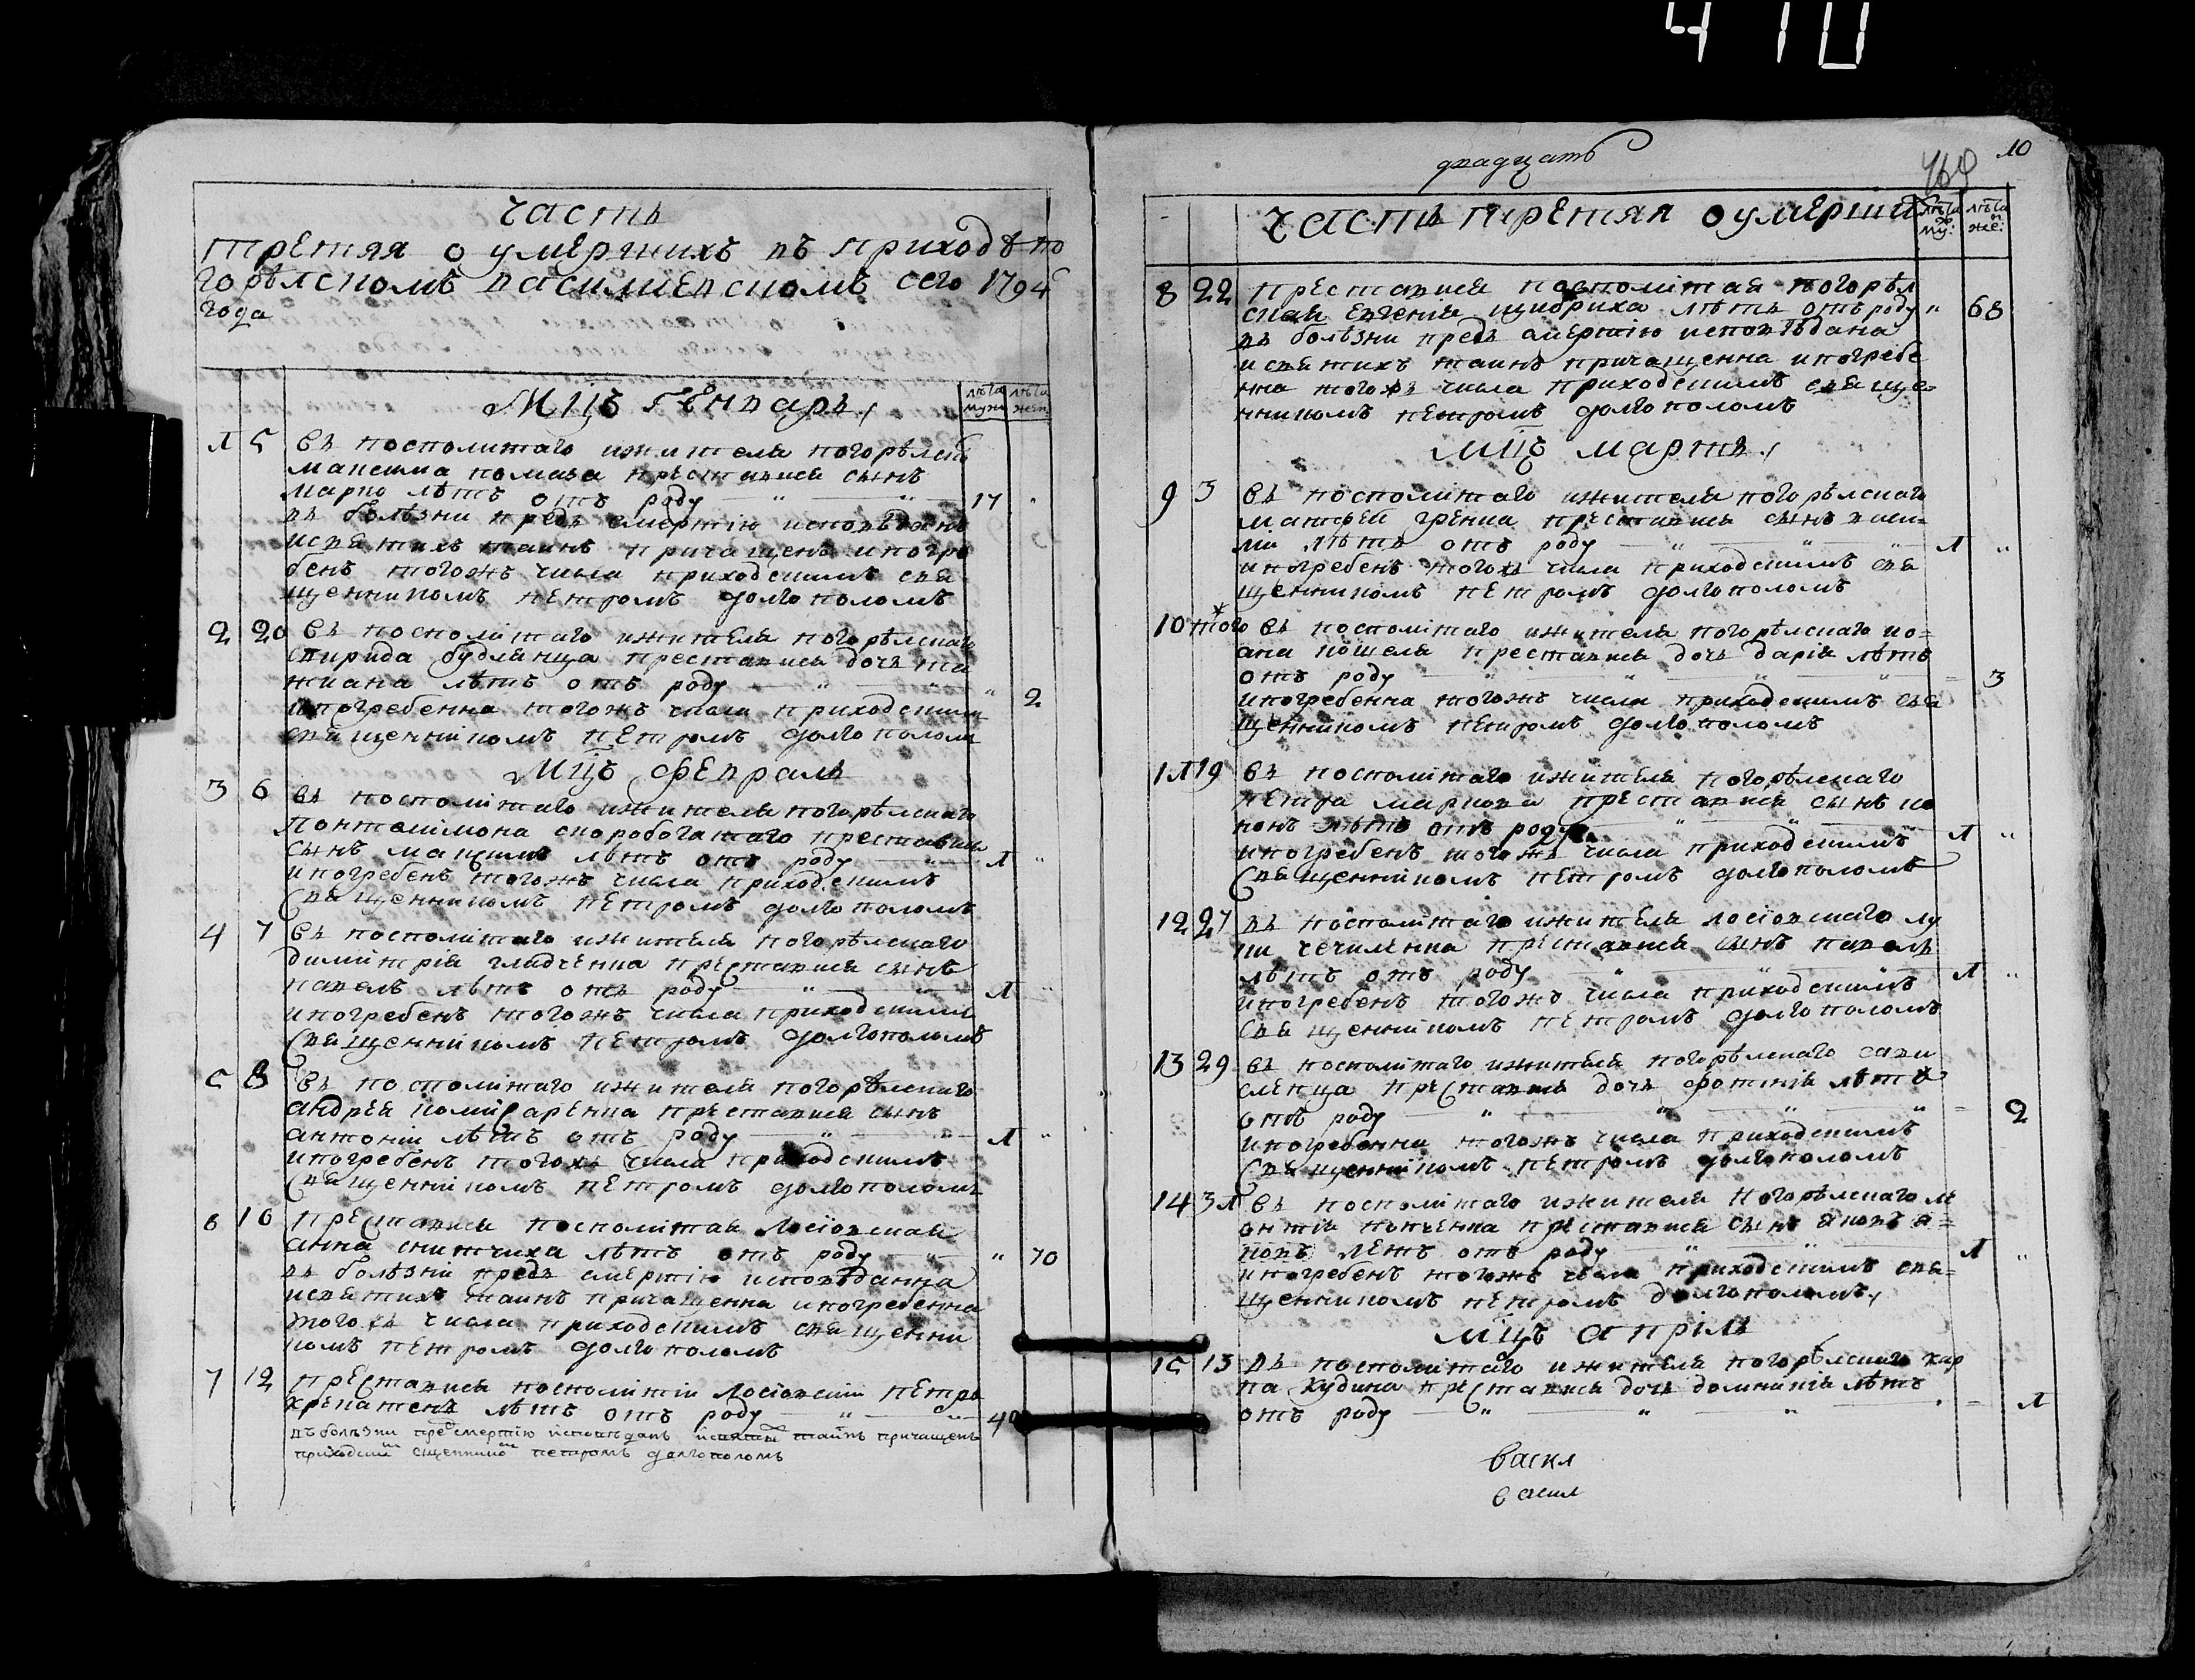 410
часть
третяя о умершихъ въ приходѣ по
горѣлскомъ василиевскомъ сего 1794
года
лѣта муж лѣта жен
Мцъ Генварь
1 5 Въ посполитаго жителя погорѣлск
марко лѣтъ отъ роду 17 "
въ болѣзни предъ смертію исповѣданъ
исвятихъ таинъ причащенъ ипогре
бенъ тогожъ числа приходскимъ свя
щенникомъ петромъ долгополомъ
2 20 Въ посполітаго жителя погорѣлскаго
спирида будлянца преставися дочь та
тиана лѣтъ отъ роду " " 2
ипогребенна тогожъ числа приходским
священнікомъ петромъ долгополом
Мцъ февраль
3 6 Въ посполітаго жителя погорѣлскаго
пантелиімона скоробогатаго преставися
сынъ максимъ лѣтъ отъ роду 1 "
ипогребенъ тогожъ числа приходскимъ
священнікомъ петромъ долгополомъ
4 7 Въ посполітаго жителя погорѣлскаго
димитрія гладченка преставися сынъ
павелъ лѣтъ отъ роду " 1 "
ипогребенъ тогожъ числа приходскимъ
священнікомъ петромъ долгополомъ
5 8 Въ посполітаго жителя погорѣлскаго
андрея преставися сынъ
антоній лѣтъ отъ роду 1 "
ипогребенъ тогожъ числа приходскимъ
священнікомъ петромъ долгополомъ
6 10 преставися посполітая лосіовская
анна снитчиха лѣтъ отъ роду " 70
въ болѣзні предъ смертію исповѣданна
исвятихъ таинъ причащенна ипогребенна
тогожъ числа приходскимъ священни
комъ петромъ долгополомъ
7 12 преставися посполітій лосіовскій петръ
лѣтъ отъ роду " " 40
въ болѣзни предсмертію исповѣданъ исвятых таинъ причащенъ
приходскій сщенникомъ петромъ долгополомъ
двадцать
10
часть третяя о умерши лѣта му: лѣта же:
8 22 преставися посполітая погорѣл
ская евгенія лѣтъ отъ роду " 68
въ болѣзни предъ смертію исповѣдана
исвятихъ таинъ причащенна ипогребе
нна тогожъ числа приходскимъ свяще=
нникомъ петромъ долгополомъ
Мцъ мартъ
9 3 Въ посполитаго жителя погорѣлскаго
матфей гренка преставися сынъ васи
лій лѣтъ отъ роду " " " 1 "
ипогребенъ тогожъ числа приходскимъ свя
щенникомъ петромъ долгополомъ
10 того ж Въ посполітаго жителя погорѣлскаго ио=
ана кошеля преставися дочь дарія лѣтъ
отъ роду " " " = 3
ипогребенна тогожъ числа приходскимъ свя
щеннікомъ петромъ долгополомъ
11 19 Въ посполітаго жителя погорѣлскаго
петра маркова преставися сынъ ко
нонъ лѣтъ отъ роду " " 1 "
ипогребенъ тогожъ числа приходскимъ
священнікомъ петромъ долгополомъ
12 27 Въ посполітаго жителя лосіовскаго лу
ки чечиленка преставися сынъ павелъ
лѣтъ отъ роду " " " 1 "
ипогребенъ тогожъ числа приходскимъ
священнікомъ петромъ долгополомъ
13 29 Въ посполітаго жителя погорѣлскаго сави
слепца преставися дочь фотинія лѣтъ
отъ роду " " " " = 2
ипогребенна тогожъ числа приходскимъ
священнікомъ петромъ долгополомъ
14 31 Въ посполітаго жителя погорѣлскаго ле
онтія попченка преставися сынъ яковъ я=
ковъ летъ отъ роду " " 1 "
ипогребенъ тогожъ числа приходскимъ свя=
щенникомъ петромъ долгополомъ
Мцъ апріль
15 13 Въ посполитаго жителя погорѣлскаго кар
па худина преставися дочь домникія лѣтъ
отъ роду " " " = 1
васил
васил